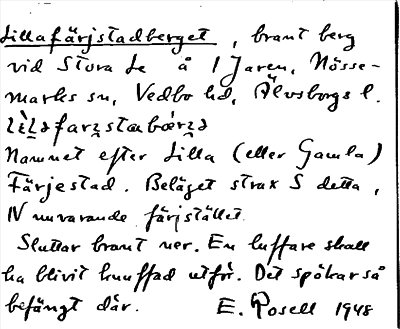 Lillafärjstadberget, brant berg
vid Stora Le å I Jaren, Nösse-
marks sn, Vedbo hd, Älvsborgs l.
Namnet efter Lilla (eller Gamla)
Färjestad. Beläget strax S detta,
N nuvarande färjstället.
Sluttar brant ner. En luffare skall
ha blivit knuffad utför. Det spökar så
befängt där. E. Rosell 1948